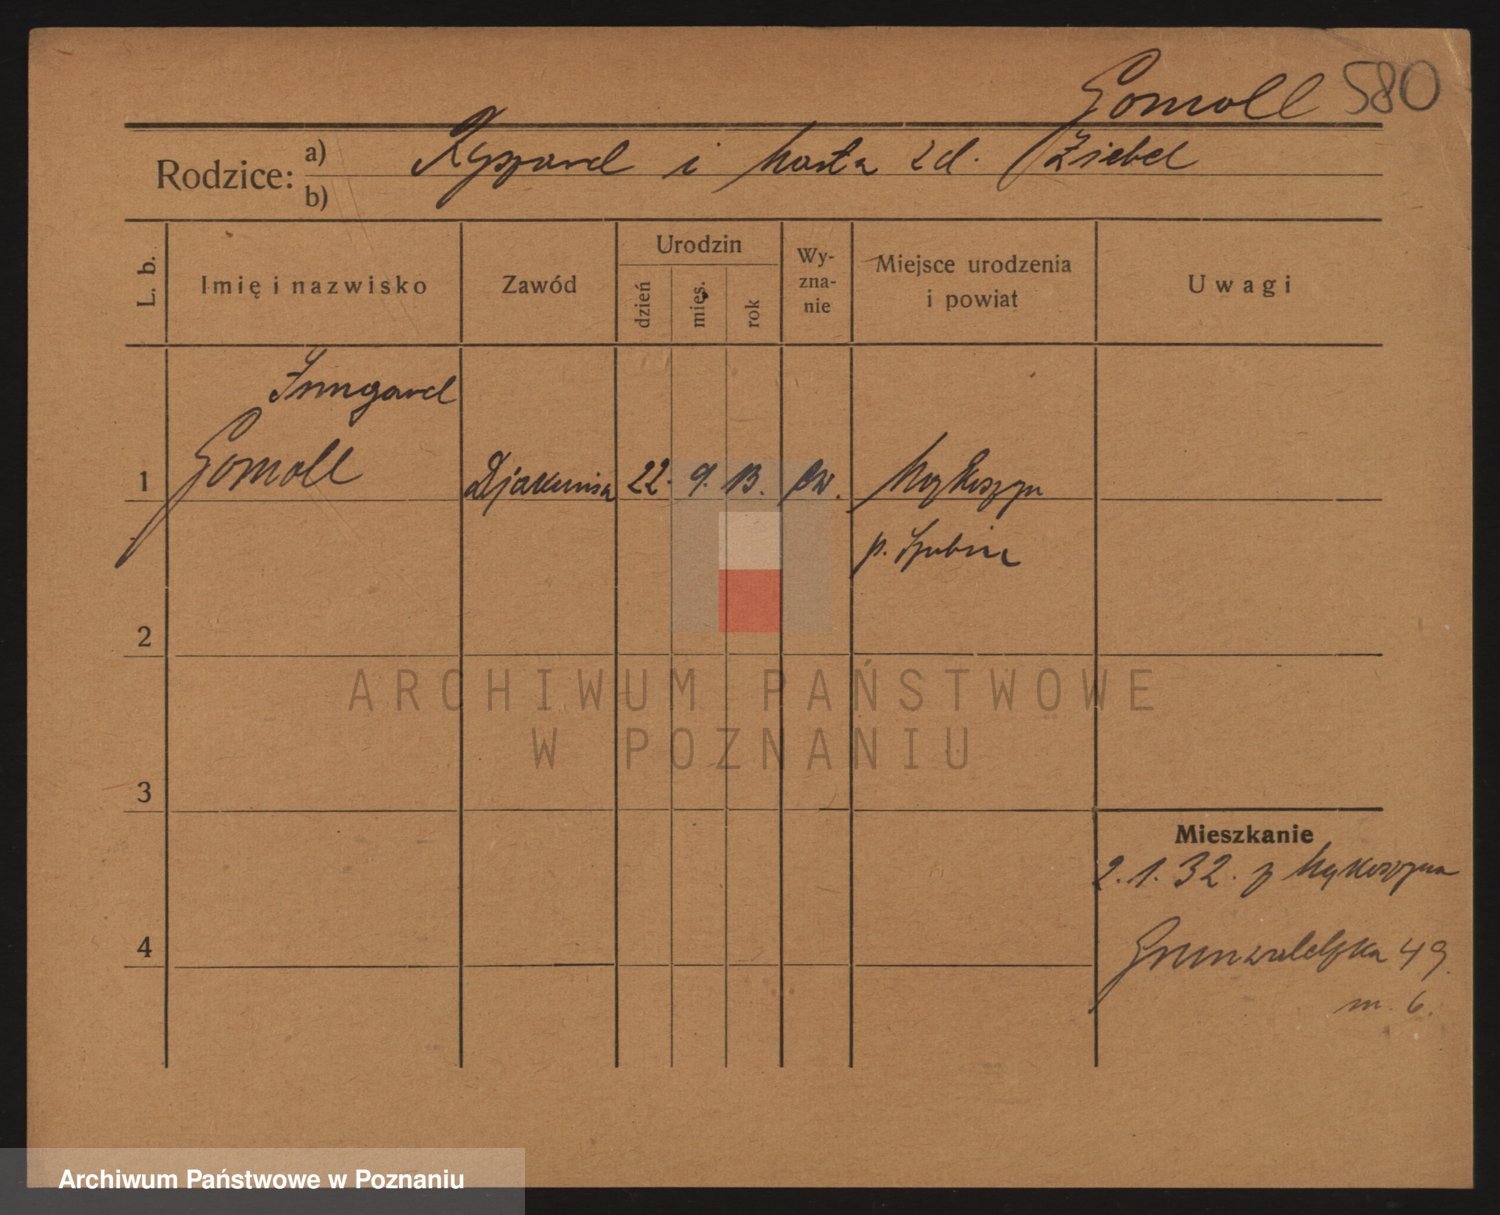 Gomoll 580
Rodzice: a) Ryszard i Marta zd. Ziebel
b)
L. b.
Imię i nazwisko
Zawód
Urodzin
dzień
mies.
rok
Wy-
zna-
nie
Miejsce urodzenia
i powiat
Uwagi
Irmgard
1 Gomoll Djakonisa 22. 9. 13. ew.
p. Szubin
2
3
4
Mieszkanie
2.1.32. z
Grunwaldzka 49
m. 6.
ARCHIWUM PAŃSTWOWE
W POZNANIU
Archiwum Państwowe w Poznaniu